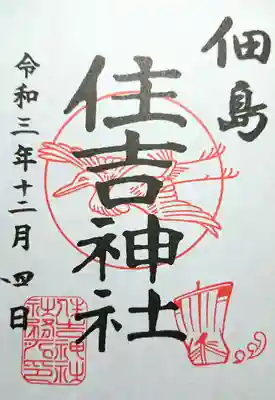 佃島
住吉神社
令和三年十二月四日
住吉神社
社務所印